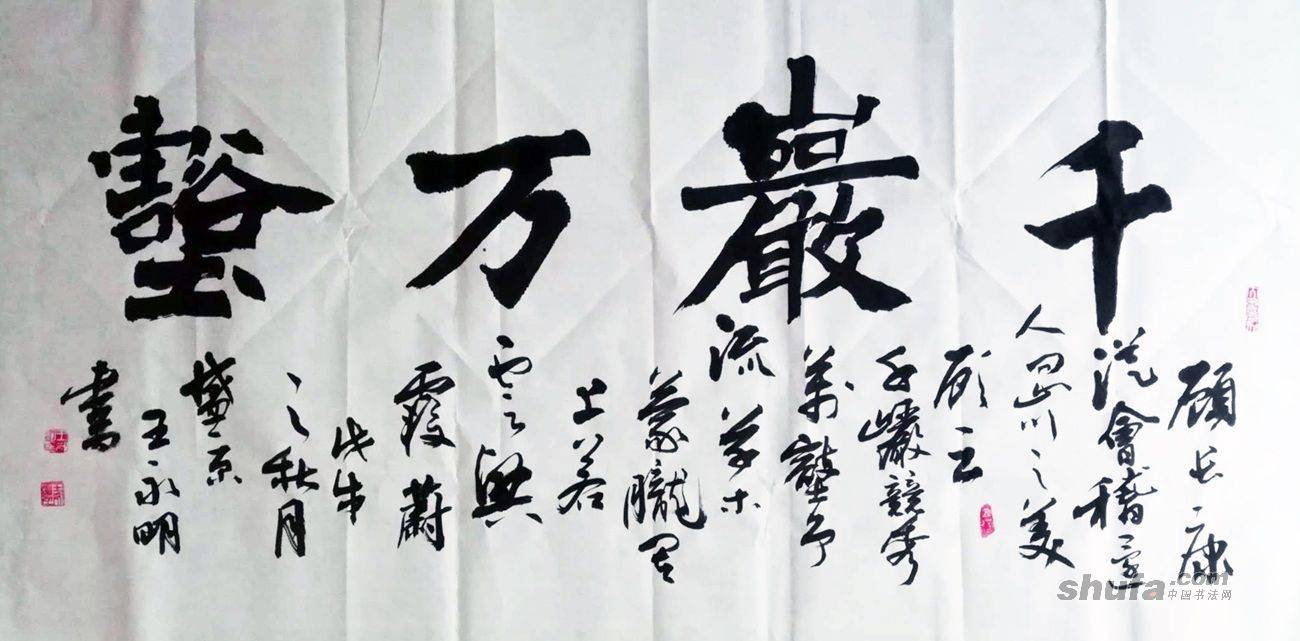 千巖万壑
顧長康
從會稽還
人问山川之美
顾云
千巖競秀
萬壑争
流草木
蒙朧其
上若
雲興
霞蔚
戊
之秋月
盛京
王永明
書
shufa.com
中国书法网